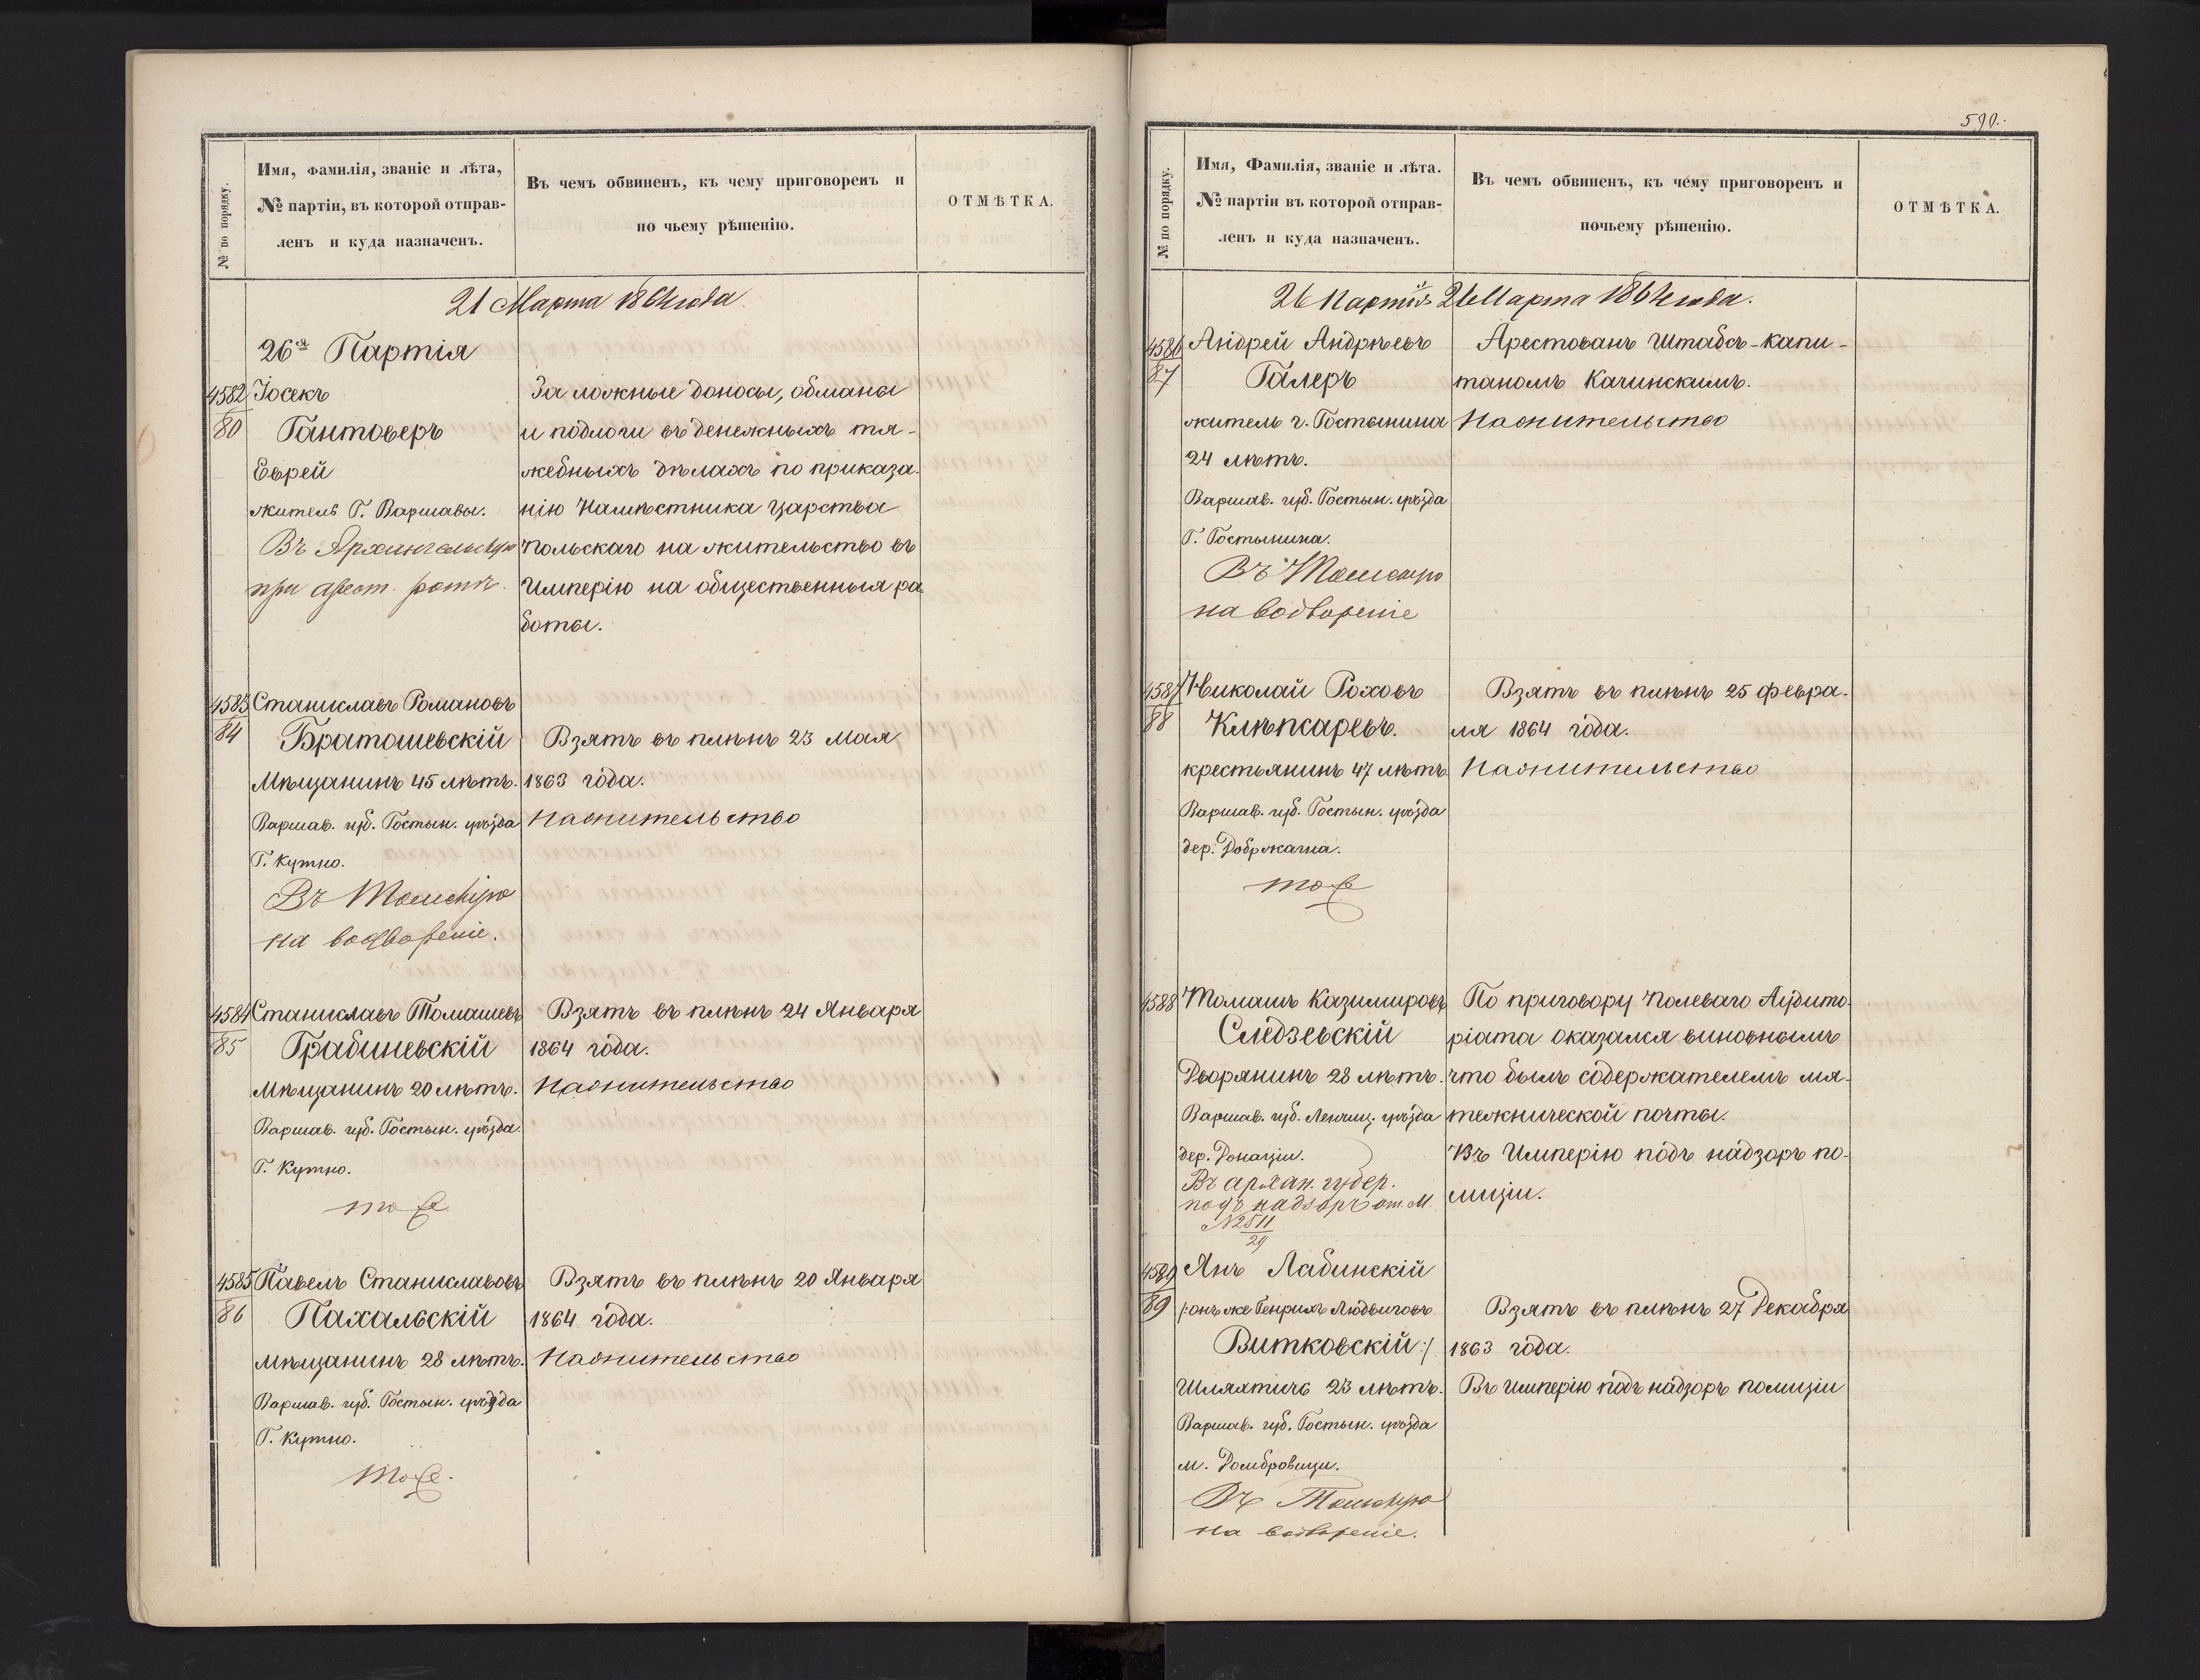 № по порядку.
Имя, фамилія, званіе и лѣта,
№ партіи, въ которой отправ-
ленъ и куда назначенъ.
Въ чемъ обвиненъ, къ чему приговоренъ и
по чьему рѣшенію.
ОТМѢТКА.
21 Марта 1864 года
26я Партія
4582
80
Іосекъ
Гантоверъ
Еврей
житель Г. Варшавы.
Въ Архангельскую
при арест. ротѣ.
За ложные доносы, обманы
и подлоги въ денежныхъ тя-
жебныхъ дѣлахъ по приказа-
нію Намѣстника Царства
Польскаго на жительство въ
Имперію на общественныя ра-
боты.
4583
84
Станиславъ Романовъ
Братошевскій
Мѣщанинъ 45 лѣтъ.
Варшав. губ. Гостын. уѣзда
Г. Кутно.
Въ Томскую
на водвореніе.
Взятъ въ плѣнъ 23 Мая
1863 года.
На жительство
4584
85
Станиславъ Томашевъ
Грабиневскій
Мѣщанинъ 20 лѣтъ.
Варшав. губ. Гостын. уѣзда.
Г. Кутно.
тоже
Взятъ въ плѣнъ 24 Января
1864 года.
На жительство
4585
86
Павелъ Станиславовъ
Пахальскій
Мѣщанинъ 28 лѣтъ.
Варшав. губ. Гостын. уѣзда
Г. Кутно.
тоже.
Взятъ въ плѣнъ 20 Января
1864 года.
На жительство
590.
№ по порядку.
Имя, Фамилія, званіе и лѣта.
№ партіи въ которой отправ-
ленъ и куда назначенъ.
Въ чемъ обвиненъ, къ чему приговоренъ и
почьему рѣшенію.
ОТМѢТКА.
26 Партія 21 Марта 1864 года.
4586
87
Андрей Андрѣевъ
Галеръ
житель г. Гостынина
24 лѣтъ.
Варшав. губ. Гостын. уѣзда
Г. Гостынина.
Въ Томскую
на водвореніе
Арестованъ Штабсъ-капи-
таномъ Качинскимъ.
На жительство
4587
88
Николай Роховъ
Клѣпсаревъ.
крестьянинъ 47 лѣтъ
Варшав. губ. Гостын. уѣзда
дер.
тоже
Взятъ въ плѣнъ 25 Февра-
ля 1864 года.
На жительство
4588
Томашъ Казимировъ
Следзевскій
Дворянинъ 28 лѣтъ.
Варшав. губ. Ленчиц. уѣзда
дер. Донаціи.
Въ архан. губер.
подъ надзоръ от. М.
№ 2511
29
По приговору Полеваго Аудито-
ріата оказался виновнымъ
что былъ содержателемъ мя-
тежнической почты.
Въ Имперію подъ надзоръ по-
лиціи.
4589
89
Янъ Лабинскій
/:онъ же Генрихъ Людвиговъ
Витковскій:/
Шляхтичъ 23 лѣтъ.
Варшав. губ. Гостын. уѣзда
м. Домбровицы.
Въ Томскую
на водвореніе.
Взятъ въ плѣнъ 27 Декабря
1863 года.
Въ Имперію подъ надзоръ полиціи